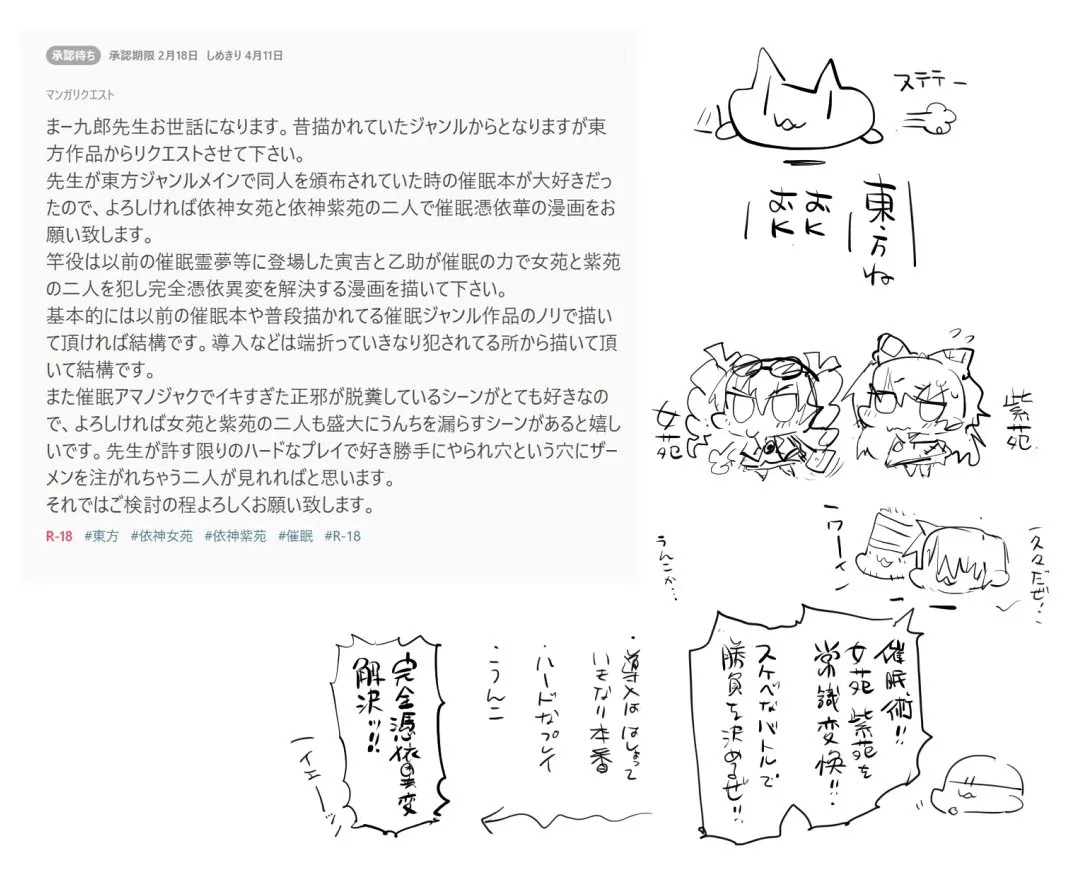 承認待ち 承認期限 2月18日 しめきり 4月11日
マンガリクエスト
まー九郎先生お世話になります。昔描かれていたジャンルからとなりますが東
方作品からリクエストさせて下さい。
先生が東方ジャンルメインで同人を頒布されていた時の催眠本が大好きだっ
たので、よろしければ依神女苑と依神紫苑の二人で催眠憑依華の漫画をお
願い致します。
竿役は以前の催眠霊夢等に登場した寅吉と乙助が催眠の力で女苑と紫苑
の二人を犯し完全憑依異変を解決する漫画を描いて下さい。
基本的には以前の催眠本や普段描かれてる催眠ジャンル作品のノリで描い
て頂ければ結構です。導入などは端折っていきなり犯されてる所から描いて頂
いて結構です。
また催眠アマノジャクでイキすぎた正邪が脱糞しているシーンがとても好きなの
で、よろしければ女苑と紫苑の二人も盛大にうんちを漏らすシーンがあると嬉し
いです。先生が許す限りのハードなプレイで好き勝手にやられ穴という穴にザー
メンを注がれちゃう二人が見れればと思います。
それではご検討の程よろしくお願い致します。
R-18 #東方 #依神女苑 #依神紫苑 #催眠 #R-18
ステテー
東方ね
おK
おK
紫苑
女苑
久々だぜ!
ワーイ
うんこか…
催眠術!!
女苑 紫苑を
常識変換!!
スケベなバトルで
勝負を決めるぜ!!
・導入ははしょって
いきなり本番
・ハードなプレイ
・うんこ
完全憑依異変
解決ッ!!
イェーッ